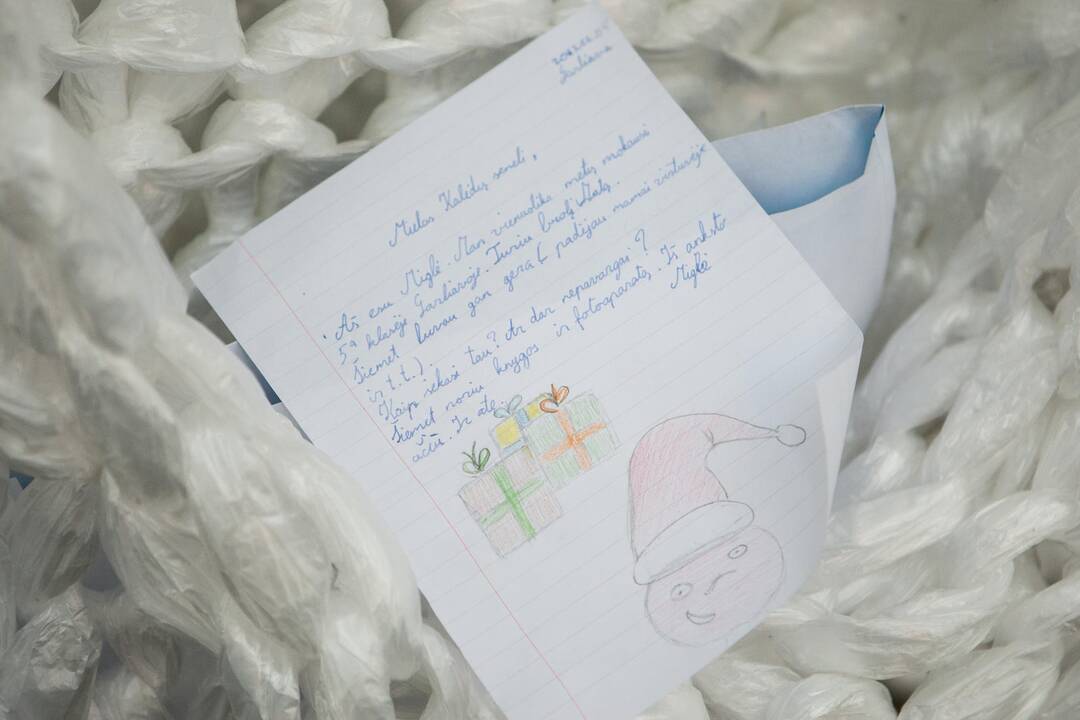 Garliava
Mielas Kalėdų seneli,
Aš esu Miglė. Man vienuolika metų, mokausi
5ª klasėje Garliavoje. Turiu brolį Matą.
Šiemet buvau gan gera ( padėjau mamai virtuvėje
ir t.t.)
Kaip sekasi tau? Ar dar nepavargai?
Šiemet noriu knygos ir fotoaparato. Iš anksto
ačiū. Ir ate.
Miglė